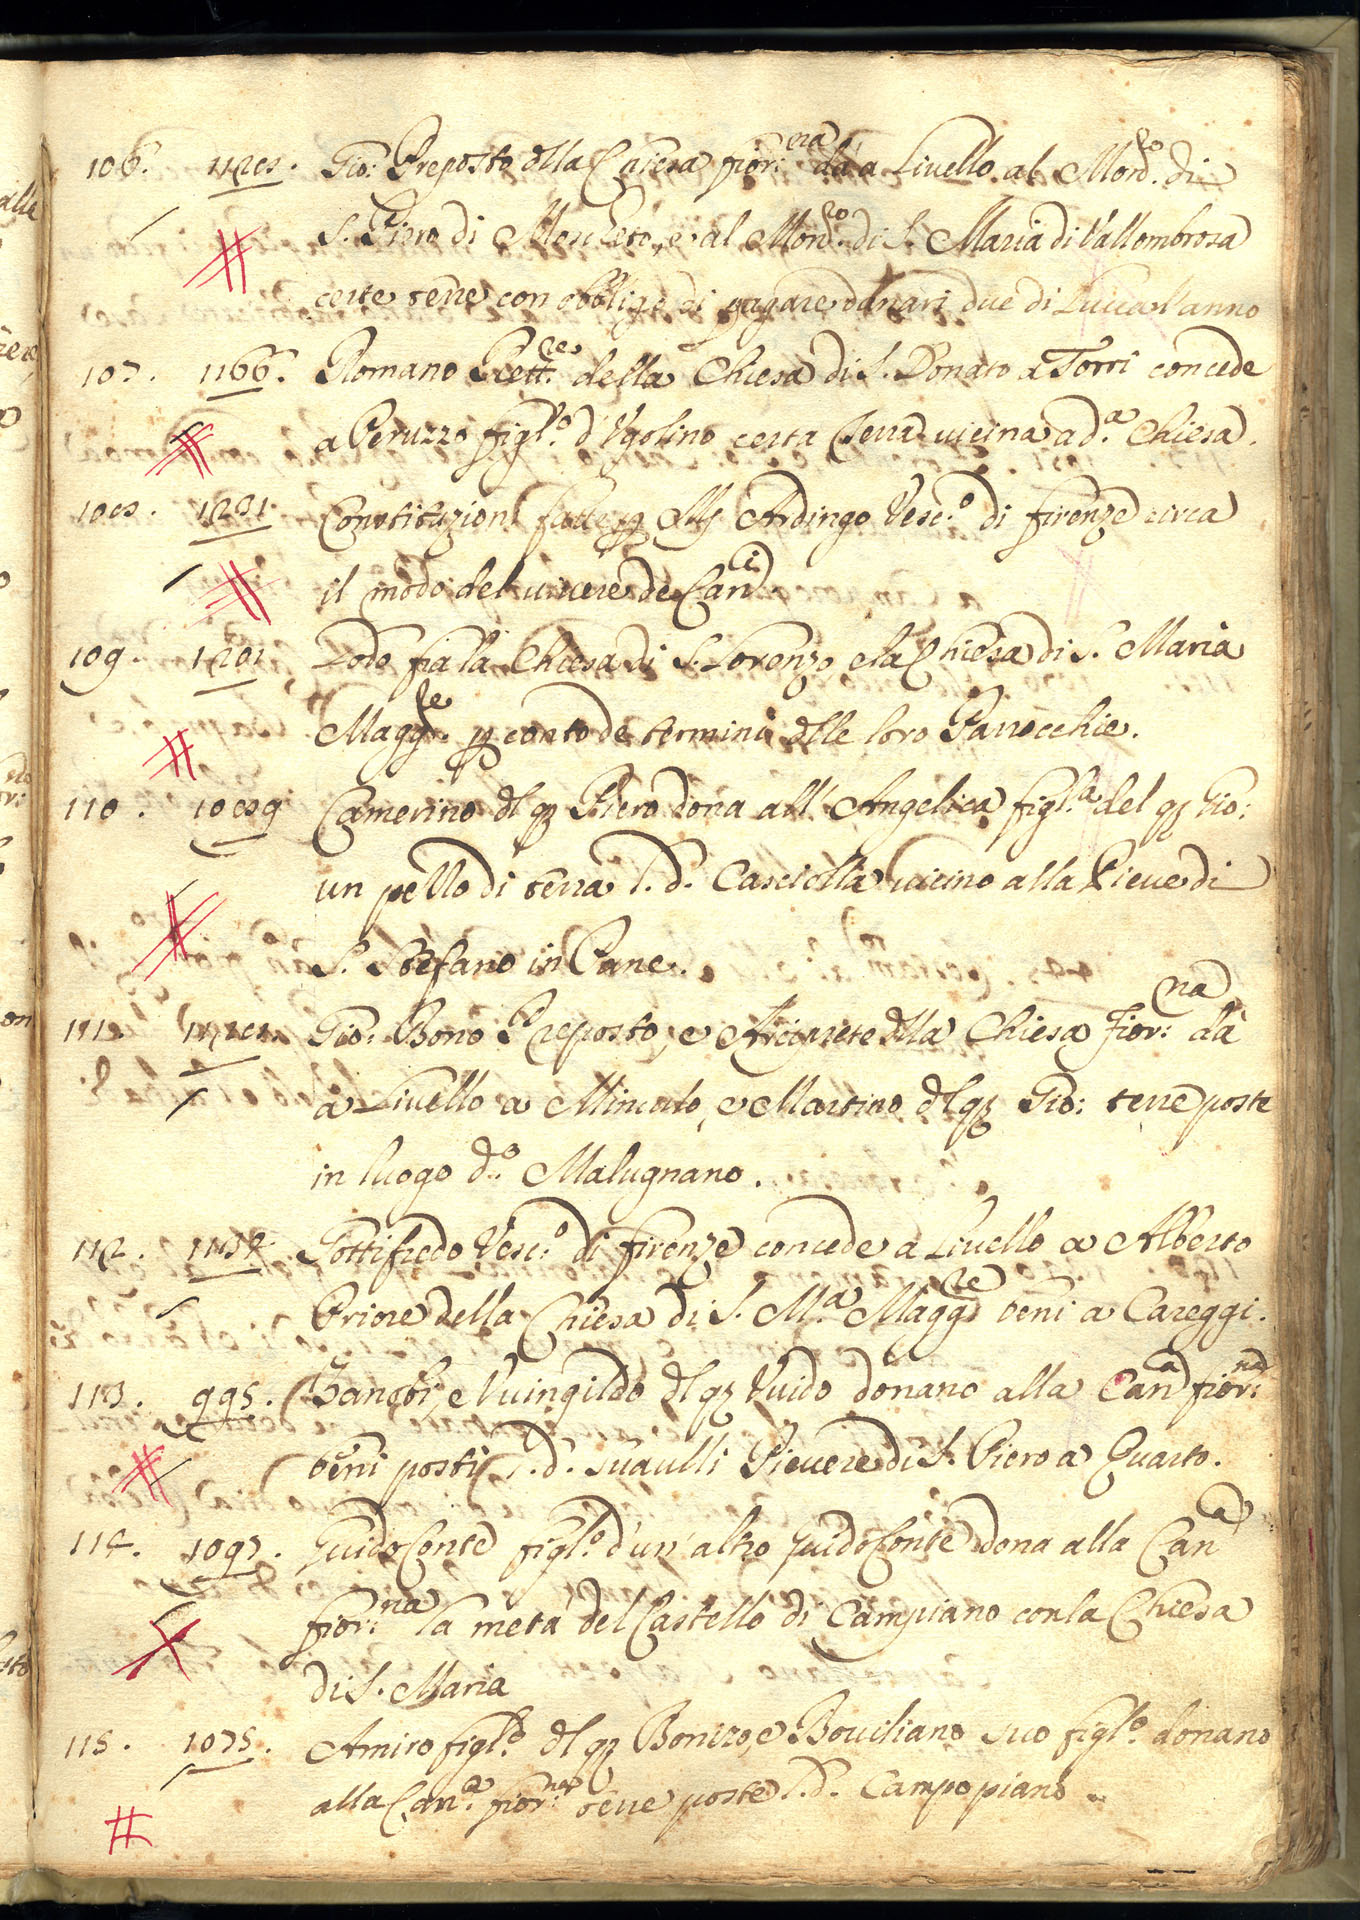 106. Gio: Preposto dlla Chiesa fior:na dà a Livello al Mon.ro di
S. Piero di Moscheto, e al Mon.ro di S. Maria di Vallombrosa
certe terre con obbligo di pagare danari due di Lucca l'anno
107. 1166. Romano Rett.re della Chiesa di S. Donato a Torri concede
a Peruzzo figl.o d'Ugolino certa terra vicina a d.a Chiesa.
Constituzioni fatte Ardingo Vesc.o di firenze circa
il modo del vivere de Can.i
109. Lodo fra la Chiesa di S. Lorenzo, e la Chiesa di S. Maria
Magg.re p conto de termini dlle loro Parrocchie.
110. Camerino dl q Piero dona all' Angelica figl.a del q Gio:
un pezzo di terra l. d. Casciolla vicino alla Pieve di
S. Stefano in Pane.
111. Gio: Bono Preposto, e Arciprete dlla Chiesa fior:na dà
a Livello a Minculo, e Martino dl q Gio: terre poste
in luogo d.o Malugnano.
112. Gottifredo Vesc.o di firenze concede a Livello a Alberto
Priore della Chiesa di S. M.a Magg.re beni a Careggi.
113. 995. e Vuingildo dl q Vuido donano alla Can.a fior:na
beni posti l. d. Pievere di S. Piero a Quarto.
114. 1097. Guido Conte figl.o d'un altro Guido Conte dona alla Can.a
fior:na la metà del Castello di Campiano con la Chiesa
di S. Maria
115. 1075. Amiro figl.o dl q Bonizo, e Bouiliano suo figl.o donano
alla Can.a fior:na terre poste l. d. Campopiano